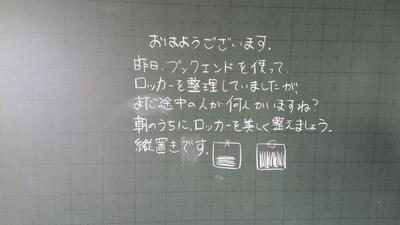 おはようございます.
昨日、ブックエンドを使って
ロッカーを整理していましたが、
まだ途中の人が何人かいますね?
朝のうちに、ロッカーを美しく整えましょう.
縦置きです. × ○